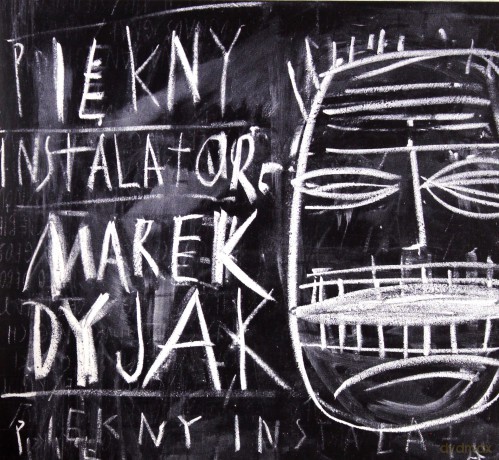 PIĘKNY
INSTALATOR
MAREK
DYJAK
PIĘKNY INSTALA